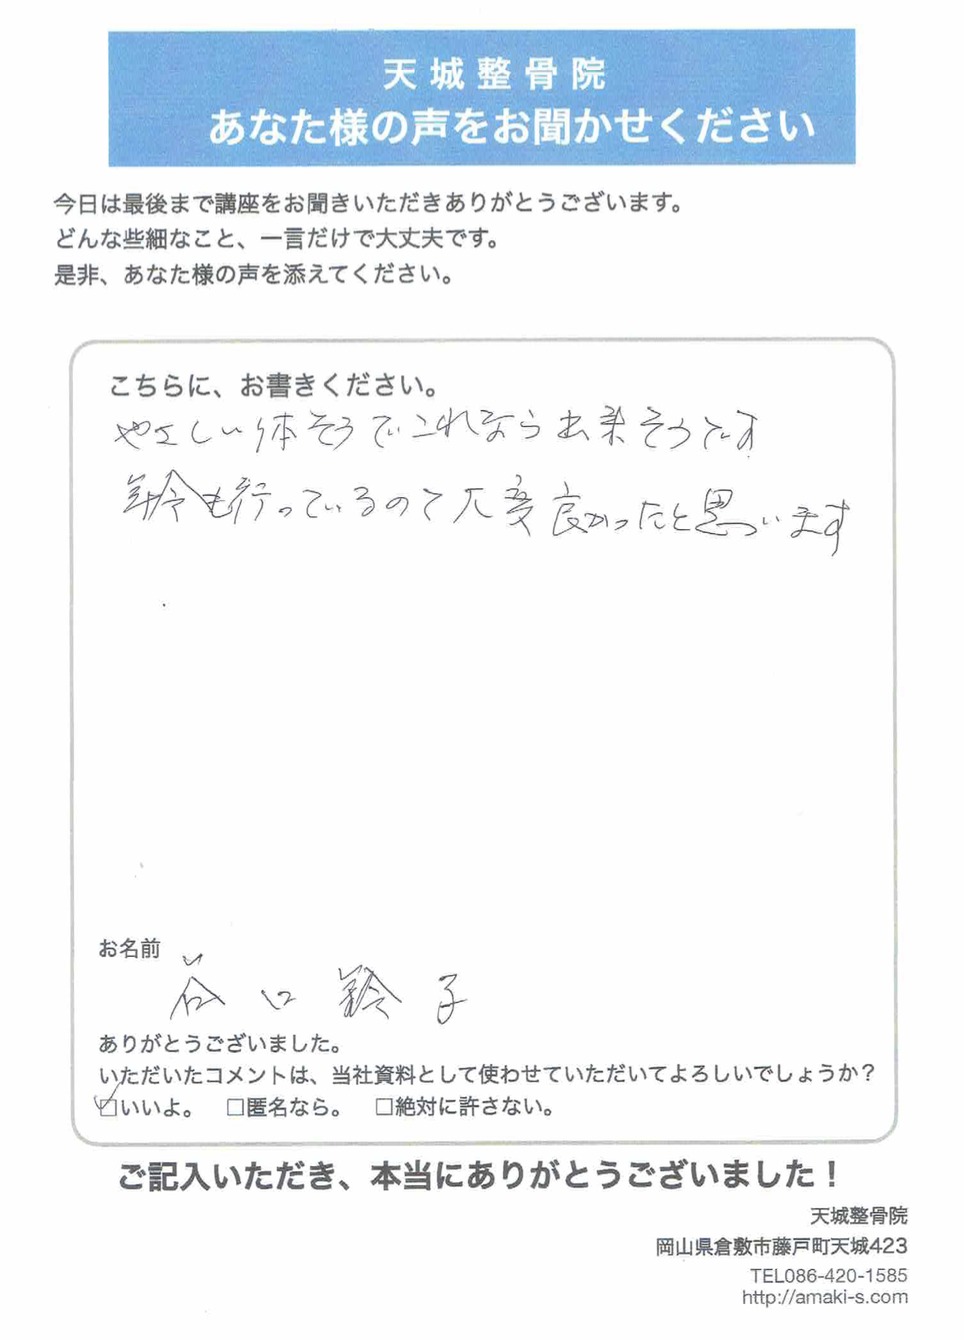 天城整骨院
あなた様の声をお聞かせください
今日は最後まで講座をお聞きいただきありがとうございます。
どんな些細なこと、一言だけで大丈夫です。
是非、あなた様の声を添えてください。
こちらに、お書きください。
やさしい体そうでこれなら出来そうです
年令も行っているので大変良かったと思います
お名前
谷口 鈴子
ありがとうございました。
いただいたコメントは、当社資料として使わせていただいてよろしいでしょうか?
☑いいよ。 □匿名なら。 □絶対に許さない。
ご記入いただき、本当にありがとうございました!
天城整骨院
岡山県倉敷市藤戸町天城423
TEL086-420-1585
http://amaki-s.com